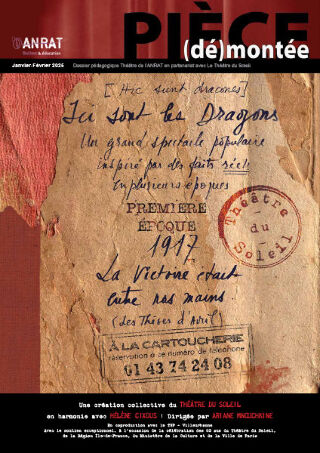 PIÈCE
(dé)montée
ANRAT
théâtre & éducation
Janvier-Février 2025
Dossier pédagogique Théâtre de l'ANRAT en partenariat avec Le Théâtre du Soleil
[Hic sunt dracones]
Ici sont les Dragons
Un grand spectacle populaire
inspiré par des faits réels
en plusieurs époques
PREMIERE
ÉPOQUE
1917
La Victoire était
entre nos mains
(Les Thèses d'Avril)
Théâtre
du
Soleil
À LA CARTOUCHERIE
réservation à ce numéro de téléphone
01 43 74 24 08
Une création collective du THÉÂTRE DU SOLEIL
en harmonie avec HÉLÈNE CIXOUS | Dirigée par ARIANE MNOUCHKINE
En coproduction avec le TNP - Villeurbanne
Avec le soutien exceptionnel, à l'occasion de la célébration des 60 ans du Théâtre du Soleil,
de la Région Île-de-France, du Ministère de la Culture et de la Ville de Paris